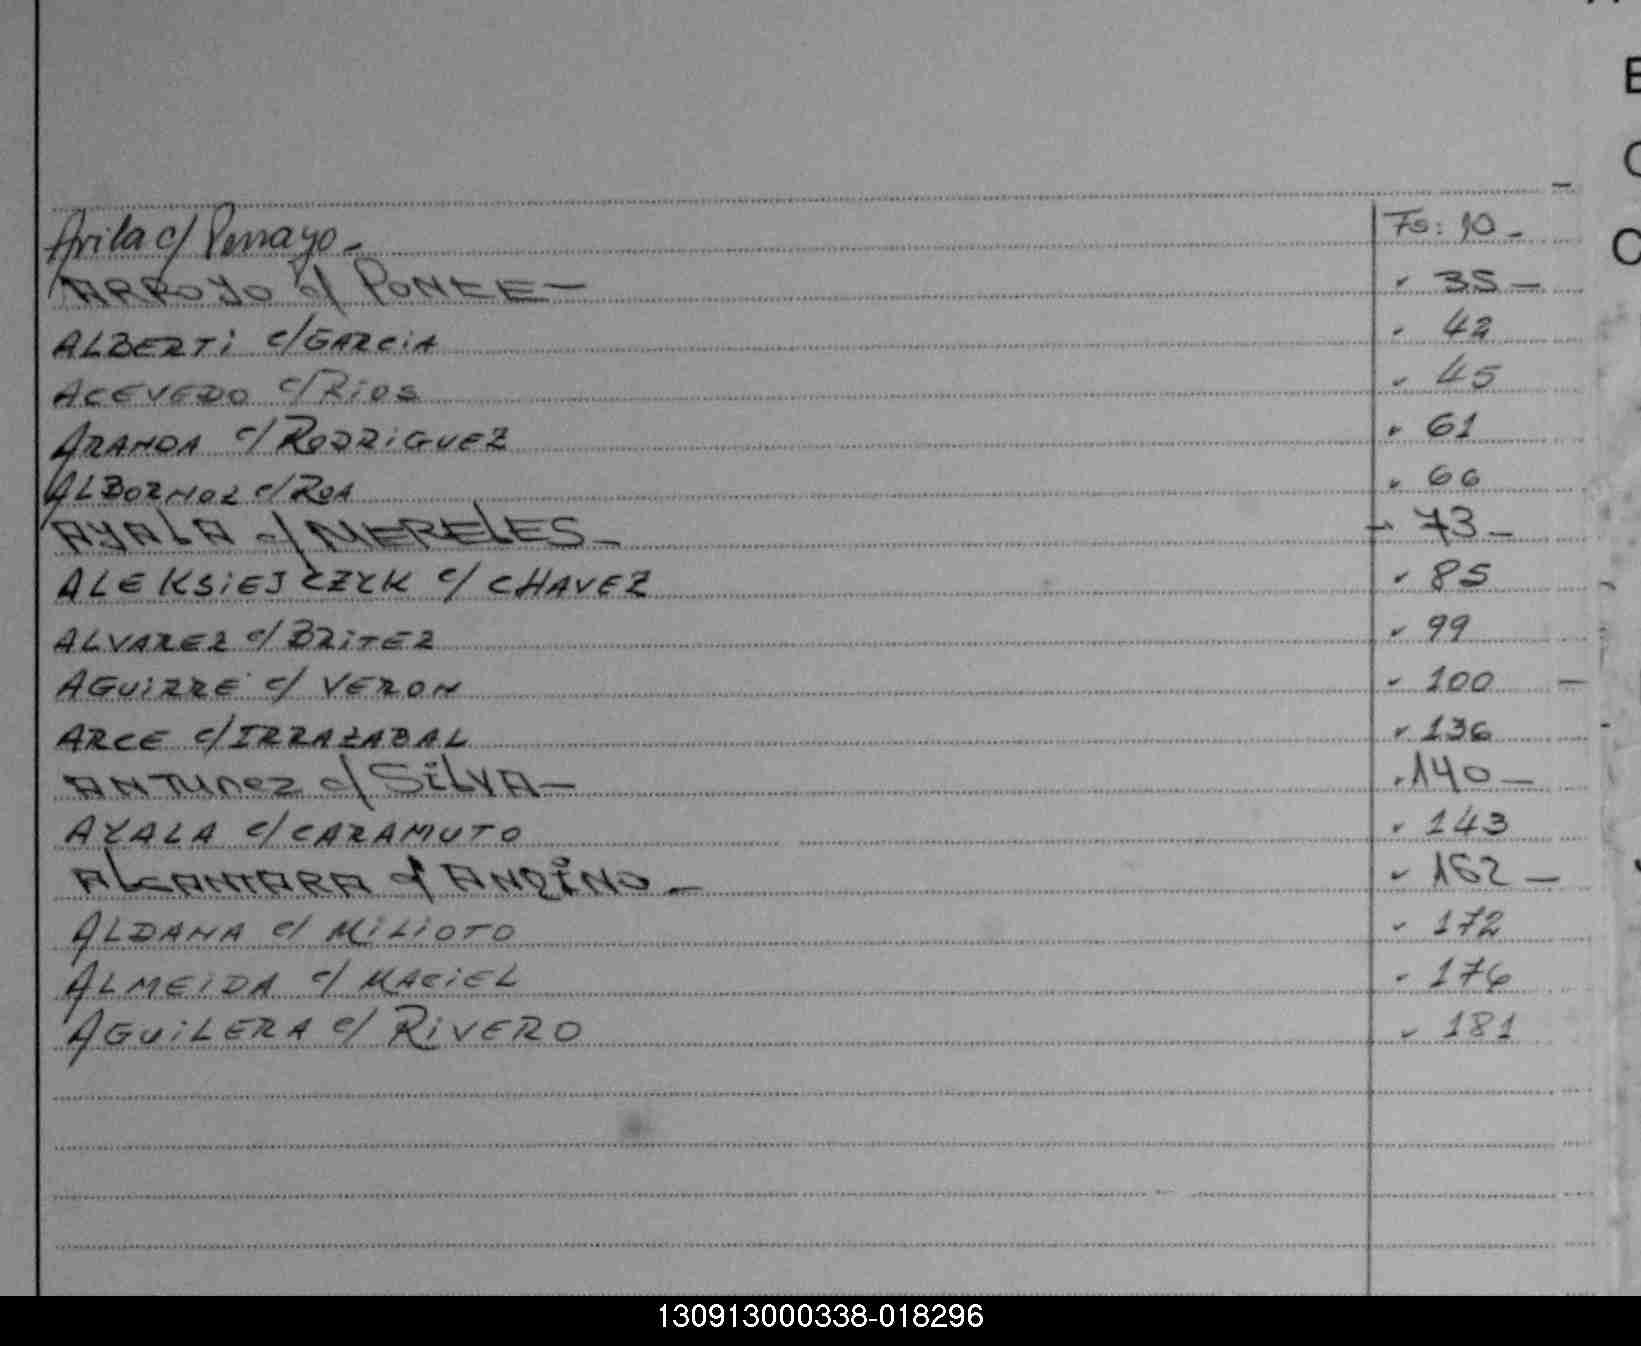 Avila c/ Penayo - Fs: 10 -
ARROYO c/ PONCE - " 35 -
ALBERTi c/ GARCiA " 42
ACEVEDO c/ RiOS " 45
ARANDA c/ RODRiGUEZ " 61
ALBORNOZ c/ ROA " 66
AYALA c/ MERELES - " 73 -
ALEKSiEJCZYK c/ CHAVEZ " 85
ALVAREZ c/ BRiTEZ " 99
AGUiRRE c/ VERON " 100
ARCE c/ IRRAZABAL " 136
ANTUnez c/ SiLVA - " 140 -
AYALA c/ CARAMUTO " 143
ALCANTARA c/ - " 162 -
ALDANA c/ MiLiOTO " 172
ALMEiDA c/ MACiEL " 176
AGUiLERA c/ RiVERO " 181
130913000338-018296